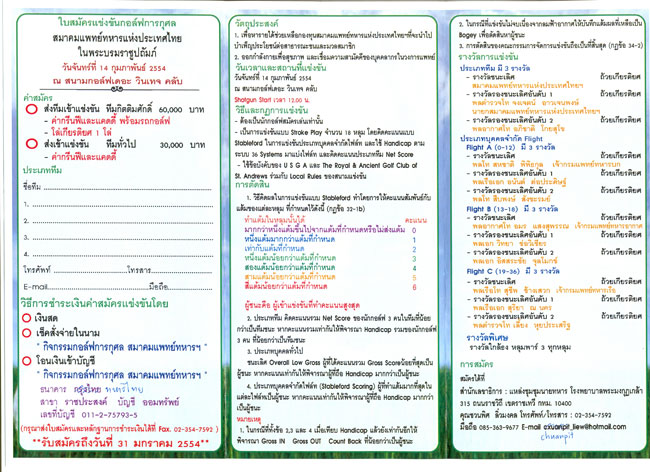 ใบสมัครแข่งขันกอล์ฟการกุศล
สมาคมแพทย์ทหารแห่งประเทศไทย
ในพระบรมราชูปถัมภ์
วันจันทร์ที่ 14 กุมภาพันธ์ 2554
ณ สนามกอล์ฟเดอะ วินเทจ คลับ
ค่าสมัคร
ส่งทีมเข้าแข่งขัน ทีมกิตติมศักดิ์ 60,000 บาท
- ค่ากรีนฟีและแคดดี้ พร้อมรถกอล์ฟ
- โล่เกียรติยศ 1 โล่
ส่งเข้าแข่งขัน ทีมทั่วไป 30,000 บาท
- ค่ากรีนฟีและแคดดี้
ประเภททีม
ชื่อทีม
1.
2.
3.
4.
โทรศัพท์ โทรสาร
E-mail มือถือ
วิธีการชำระเงินค่าสมัครแข่งขันโดย
เงินสด
เช็คสั่งจ่ายในนาม
" กิจกรรมกอล์ฟการกุศล สมาคมแพทย์ทหารฯ "
โอนเงินเข้าบัญชี
" กิจกรรมกอล์ฟการกุศล สมาคมแพทย์ทหารฯ "
ธนาคาร ทหารไทย
สาขา ราชประสงค์ บัญชี ออมทรัพย์
เลขที่บัญชี 011-2-75793-5
(กรุณาส่งใบสมัครและหลักฐานการชำระเงินได้ที่ Fax. 02-354-7592 )
**รับสมัครถึงวันที่ 31 มกราคม 2554**
วัตถุประสงค์
1. เพื่อหารายได้ช่วยเหลือกองทุนสมาคมแพทย์ทหารแห่งประเทศไทยฯที่จะนำไป
บำเพ็ญประโยชน์ต่อสาธารณะชนและมวลสมาชิก
2. ออกกำลังกายเพื่อสุขภาพ และเชื่อมความสามัคคีของบุคคลากรในวงการแพทย์
วันเวลาและสถานที่แข่งขัน
วันจันทร์ที่ 14 กุมภาพันธ์ 2554
ณ สนามกอล์ฟเดอะ วินเทจ คลับ
Shotgun Start เวลา 12.00 น.
วิธีและกฎการแข่งขัน
- ต้องเป็นนักกอล์ฟสมัครเล่นเท่านั้น
- เป็นการแข่งขันแบบ Stoke Play จำนวน 18 หลุม โดยคิดคะแนนแบบ
Stableford ในการแข่งขันประเภทบุคคลจำกัดไฟล์ท และใช้ Handicap ตาม
ระบบ 36 Systems มาแบ่งไฟล์ท และคิดคะแนนประเภททีม Net Score
- ใช้ข้อบังคับของ U S G A และ The Royal & Ancient Golf Club of
St. Andrews ร่วมกับ Local Rules ของสนามแข่งขัน
การตัดสิน
1. วิธีคิดผลในการแข่งขันแบบ Stableford ทำโดยการให้คะแนนสัมพันธ์กับ
แต้มของแต่ละหลุม ที่กำหนดไว้ดังนี้ (กฎข้อ 32-1b)
ทำแต้มในหลุมนั้นได้ คะแนน
มากกว่าหนึ่งแต้มขึ้นไปจากแต้มที่กำหนดหรือไม่ส่งแต้ม 0
หนึ่งแต้มมากกว่าแต้มที่กำหนด 1
เท่ากับแต้มที่กำหนด 2
หนึ่งแต้มน้อยกว่าแต้มที่กำหนด 3
สองแต้มน้อยกว่าแต้มที่กำหนด 4
สามแต้มน้อยกว่าแต้มที่กำหนด 5
สี่แต้มน้อยกว่าแต้มที่กำหนด 6
ผู้ชนะคือ ผู้เข้าแข่งขันที่ทำคะแนนสูงสุด
2. ประเภททีม คิดคะแนนรวม Net Score ของนักกอล์ฟ 3 คนในทีมที่น้อย
กว่าเป็นทีมชนะ หากคะแนนรวมเท่ากันให้พิจารณา Handicap รวมของนักกอล์ฟ
3 คน ที่น้อยกว่าเป็นทีมชนะ
3. ประเภทบุคคลทั่วไป
ชนะเลิศ Overall Low Gross ผู้ที่ได้คะแนนรวม Gross Scoreน้อยที่สุดเป็น
ผู้ชนะ หากคะแนนเท่ากันให้พิจารณาผู้ที่มีถือ Handicap มากกว่าเป็นผู้ชนะ
4. ประเภทบุคคลจำกัดไฟล์ท (Stableford Scoring) ผู้ที่ทำแต้มมากที่สุดใน
แต่ละไฟล์ทเป็นผู้ชนะ หากคะแนนเท่ากันให้พิจารณาผู้ที่ถือ Handicap มากกว่า
เป็นผู้ชนะ
หมายเหตุ
1. ในกรณีที่ทั้งข้อ 2,3 และ 4 เมื่อเทียบ Handicap แล้วยังเท่ากันอีกให้
พิจารณา Gross IN Gross OUT Count Back ที่น้อยกว่าเป็นผู้ชนะ
2. ในกรณีที่แข่งขันไม่จบเนื่องจากลมฟ้าอากาศให้บันทึกแต้มผลที่เหลือเป็น
Bogey เพื่อตัดสินผู้ชนะ
3. การตัดสินของคณะกรรมการจัดการแข่งขันถือเป็นที่สิ้นสุด (กฎข้อ 34-2)
รางวัลการแข่งขัน
ประเภททีม มี 3 รางวัล
- รางวัลชนะเลิศ ถ้วยเกียรติยศ
สมาคมแพทย์ทหารแห่งประเทศไทยฯ
- รางวัลรองชนะเลิศอันดับ 1 ถ้วยเกียรติยศ
นายกสมาคมแพทย์ทหารแห่งประเทศไทยฯ
- รางวัลรองชนะเลิศอันดับ 2 ถ้วยเกียรติยศ
ประเภทบุคคลจำกัด Flight
Flight A (0-12) มี 3 รางวัล
- รางวัลชนะเลิศ ถ้วยเกียรติยศ
- รางวัลรองชนะเลิศอันดับ 1 ถ้วยเกียรติยศ
- รางวัลรองชนะเลิศอันดับ 2 ถ้วยเกียรติยศ
Flight B (13-18) มี 3 รางวัล
- รางวัลชนะเลิศ ถ้วยเกียรติยศ
- รางวัลรองชนะเลิศอันดับ 1 ถ้วยเกียรติยศ
- รางวัลรองชนะเลิศอันดับ 2 ถ้วยเกียรติยศ
Flight C (19-36) มี 3 รางวัล
- รางวัลชนะเลิศ ถ้วยเกียรติยศ
- รางวัลรองชนะเลิศอันดับ 1 ถ้วยเกียรติยศ
- รางวัลรองชนะเลิศอันดับ 2 ถ้วยเกียรติยศ
รางวัลพิเศษ
รางวัลใกล้ธง หลุมพาร์ 3 ทุกหลุม
การสมัคร
สมัครได้ที่
สำนักเลขาธิการ : แหล่งชุมชุมนายทหาร โรงพยาบาลพระมงกุฎเกล้า
315 ถนนราชวิถี เขตราชเทวี กทม. 10400
โทรศัพท์/โทรสาร : 02-354-7592
มือถือ 085-363-9677
chuanpit